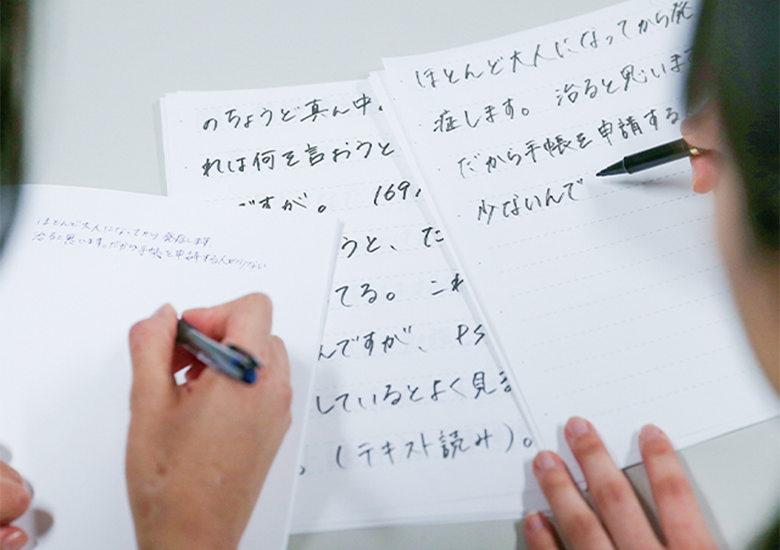 ほとんど大人になってから発
症します。治ると思います
だから手帳を申請する
少ないんで
のちょうど真ん中。
れは何を言おうと
ですが。169,
うと、た
てる。これ
んですが、PS
しているとよく見ま
。(テキスト読み)。
ほとんど大人になってから発症します
治ると思います。だから手帳を申請する人が少ない